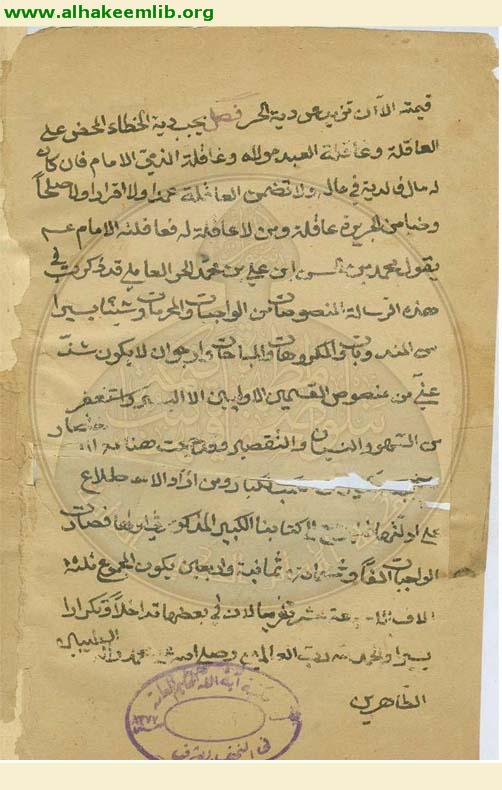 www.alhakeemlib.org
قيمته الا ان تزيد عن دية الحر فصل يجب دية الخطاء المحض على
العاقلة وعاقلة العبد مولاه وعاقلة الذمي الامام فان كان
له مال فالدية في ماله ولا تضمن العاقلة عمدا ولا اقرارا ولا صلحا
وضامن الجريرة عاقلة ومن لا عاقلة له فعاقلته الامام عم
يقول محمد بن الحسن ابن علي بن محمد الحر العاملي قد ذكرت في
هذه الرسالة المنصوصات من الواجبات والمحرمات وشيئا يسيرا
من المندوبات والمكروهات والمباحات وارجو ان لا يكون شذ
عني من منصوص القسمين الاولين الا اليسير واستغفر
من السهو والنسيان والتقصير
ومن اراد الاطلاع
على ادلتها كتابنا الكبير المذكور فصارت
الواجبات الفا وخمسمائة وثمانية واربعين يكون المجموع ثلثة
الاف تقريبا لان في بعضها تداخلا وتكرارا
يسيرا والحمد لله رب العالمين وصلى الله على محمد واله الطيبين
الطاهرين
في النجف الاشرف